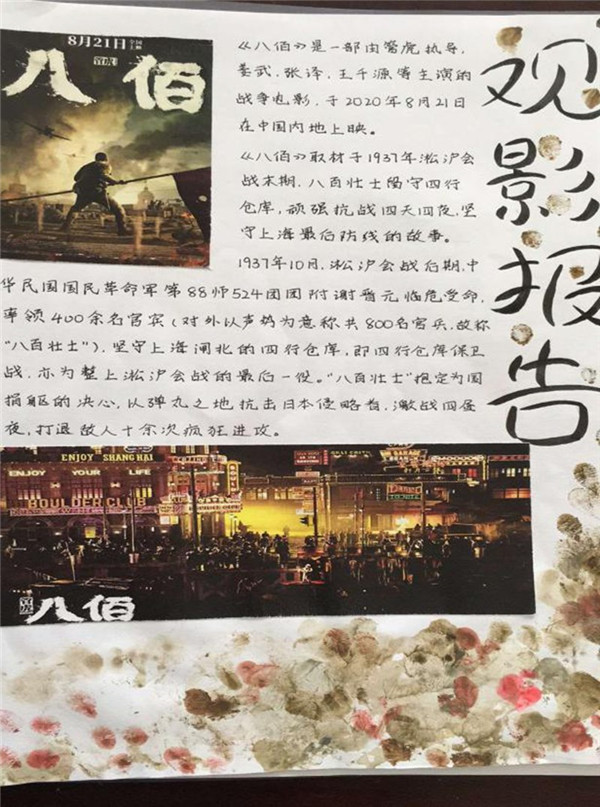 8月21日 全国上映
管虎
八佰
《八佰》是一部由管虎执导,
姜武,张译,王千源等主演的
战争电影,于2020年8月21日
在中国内地上映。
《八佰》取材于1937年淞沪会
战末期,八百壮士固守四行
仓库,顽强抗战四天四夜,坚
守上海最后防线的故事。
1937年10月,淞沪会战后期,中
华民国国民革命军第88师524团团附谢晋元临危受命,
率领400余名官兵(对外以声妫为意称共800名官兵,故称
“八百壮士”),坚守上海闸北的四行仓库,即四行仓库保卫
战,亦为整上淞沪会战的最后一役。“八百壮士”抱定为国
捐躯的决心,以弹丸之地抗击日本侵略者,激战四昼
夜,打退敌人十余次疯狂进攻。
观影报告
ENJOY SHANGHAI
ENJOY YOUR LIFE
BOULDER CLUB
管虎
八佰